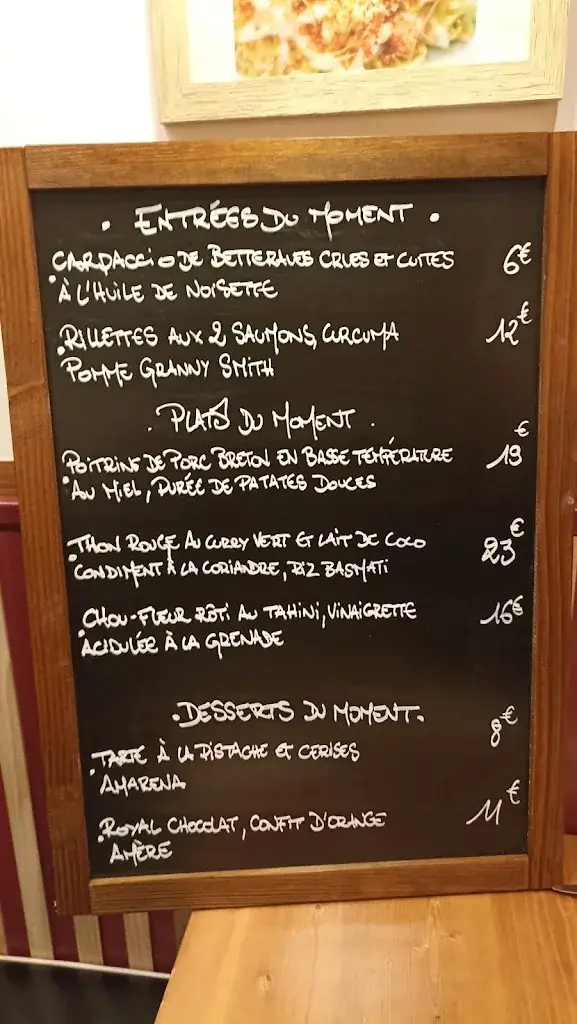 . ENTRÉES DU MOMENT .
CARPACCIO DE BETTERAVES CRUES ET CUITES 6€
À L'HUILE DE NOISETTE
.RILLETTES AUX 2 SAUMONS, CURCUMA 12€
POMME GRANNY SMITH
. PLATS DU MOMENT .
POITRINE DE PORC BRETON EN BASSE TEMPÉRATURE 19€
AU MIEL, PURÉE DE PATATES DOUCES
.THON ROUGE AU CURRY VERT ET LAIT DE COCO 23€
CONDIMENT À LA CORIANDRE, RIZ BASMATI
.CHOU-FLEUR RÔTI AU TAHINI, VINAIGRETTE 16€
ACIDULÉE À LA GRENADE
.DESSERTS DU MOMENT.
.TARTE À LA PISTACHE ET CERISES 8€
AMARENA
.ROYAL CHOCOLAT, CONFIT D'ORANGE 11€
AMÈRE